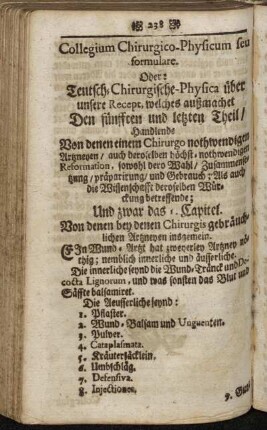 238
Collegium Chirurgico-Physicum seu
formulare.
Oder:
Teutsch-Chirurgische-Physica über
unsere Recept, welches außmachet
Den fünfften und letzten Theil/
Handlende
Von denen einem Chirurgo nothwendigen
Artzneyen/ auch deroselben höchst-nothwendigen
Reformation, sowohl dero Wahl/ Zusammense-
tzung/ præparirung/ und Gebrauch; Als auch/
die Wissenschafft deroselben Wür-
ckung betreffende;
Und zwar das Capitel.
Von denen bey denen Chirurgis gebräuch-
lichen Artzneyen insgemein.
EIn Wund-Artzt hat zweyerley Artzney nö-
thig; nemblich innerliche und äusserliche.
Die innerliche seynd die Wund-Tränck und De-
cocta Lignorum, und was sonsten das Blut und
Säffte balsamiret.
Die Aeusserliche seynd:
1. Pflaster.
2. Wund-Balsam und Unguenten.
3. Pulver.
4. Cataplasmata.
5. Kräutersäcklein.
6. Umbschläg.
7. Defensiva.
8. Injectiones.
9.